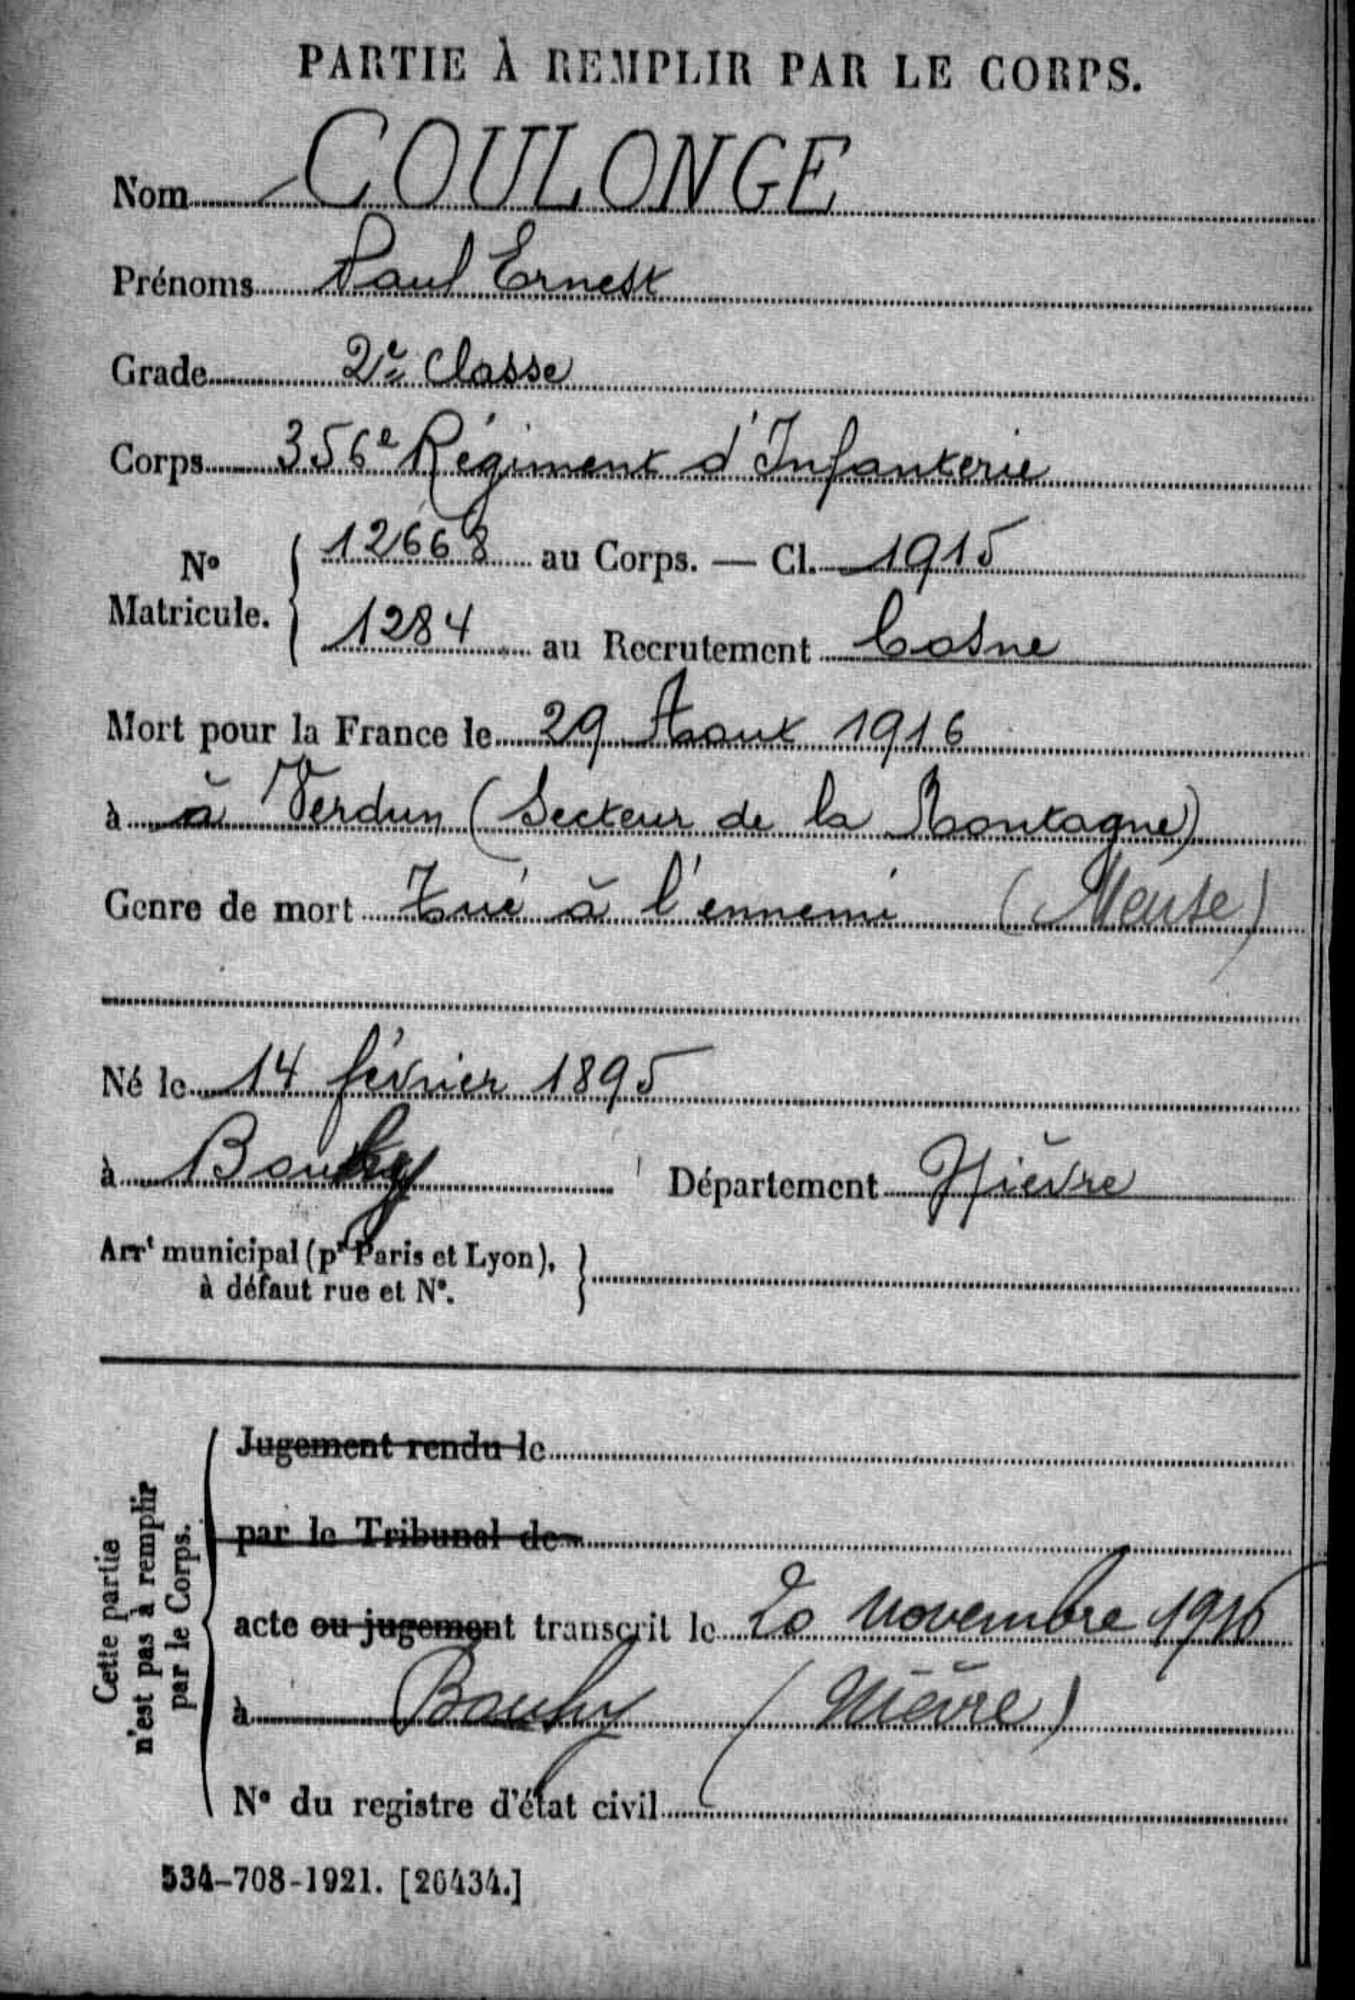 PARTIE À REMPLIR PAR LE CORPS.
Nom COULONGE
Prénoms Paul Ernest
Grade 2e classe
Corps 356e Régiment d'Infanterie
No Matricule. { 12668 au Corps. — Cl. 1915
1284 au Recrutement Cosne
Mort pour la France le 29 Aout 1916
à à Verdun (Secteur de la Montagne)
Genre de mort Tué à l'ennemi (Meuse)
Né le 14 février 1895
à Bouhy Département Nièvre
Arrt municipal (pr Paris et Lyon), à défaut rue et No. }
Cette partie n'est pas à remplir par le Corps.
Jugement rendu le
par le Tribunal de
acte ou jugement transcrit le 20 novembre 1916
à Bouhy (Nièvre)
No du registre d'état civil
534-708-1921. [26434.]